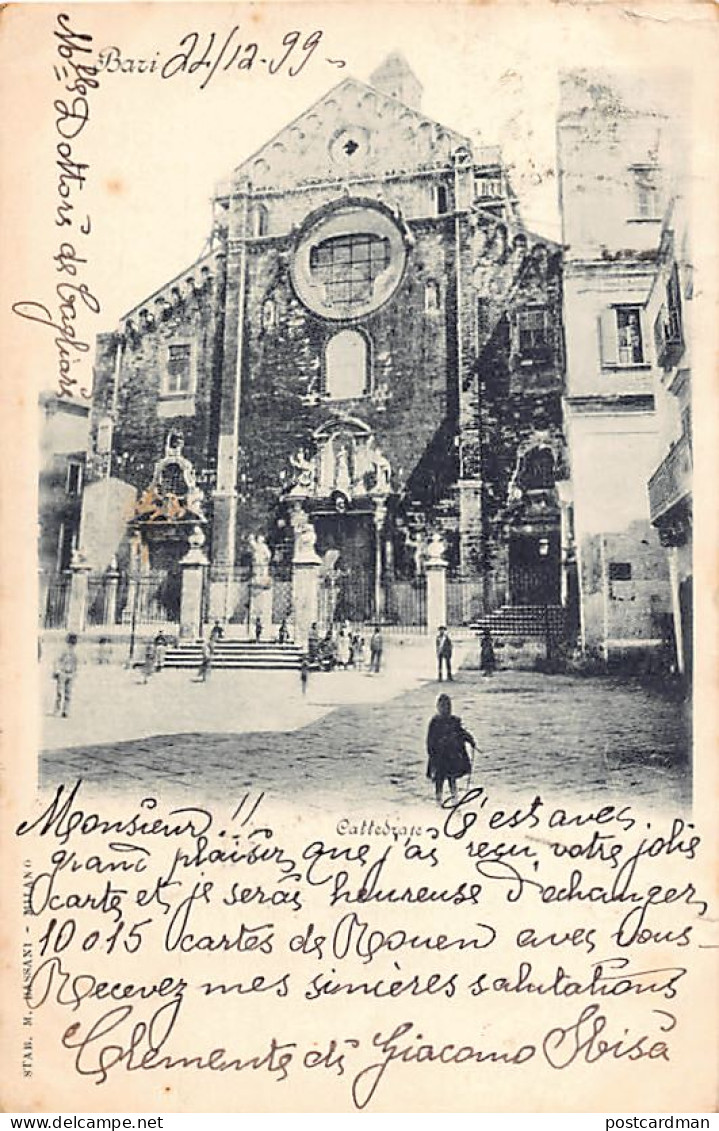 Bari 21/12.99
Mlle Dottors de Cagliars
Cattedrale
Monsieur!! C'est avec
grand plaisir que j'ai reçu votre jolie
carte et je serai heureuse d'echanger
10 o 15 cartes de Rouen avec vous-
Recevez mes sincières salutations
Clemente di Giacomo Sbisà
STAB. M. BASSANI - MILANO
postcardman